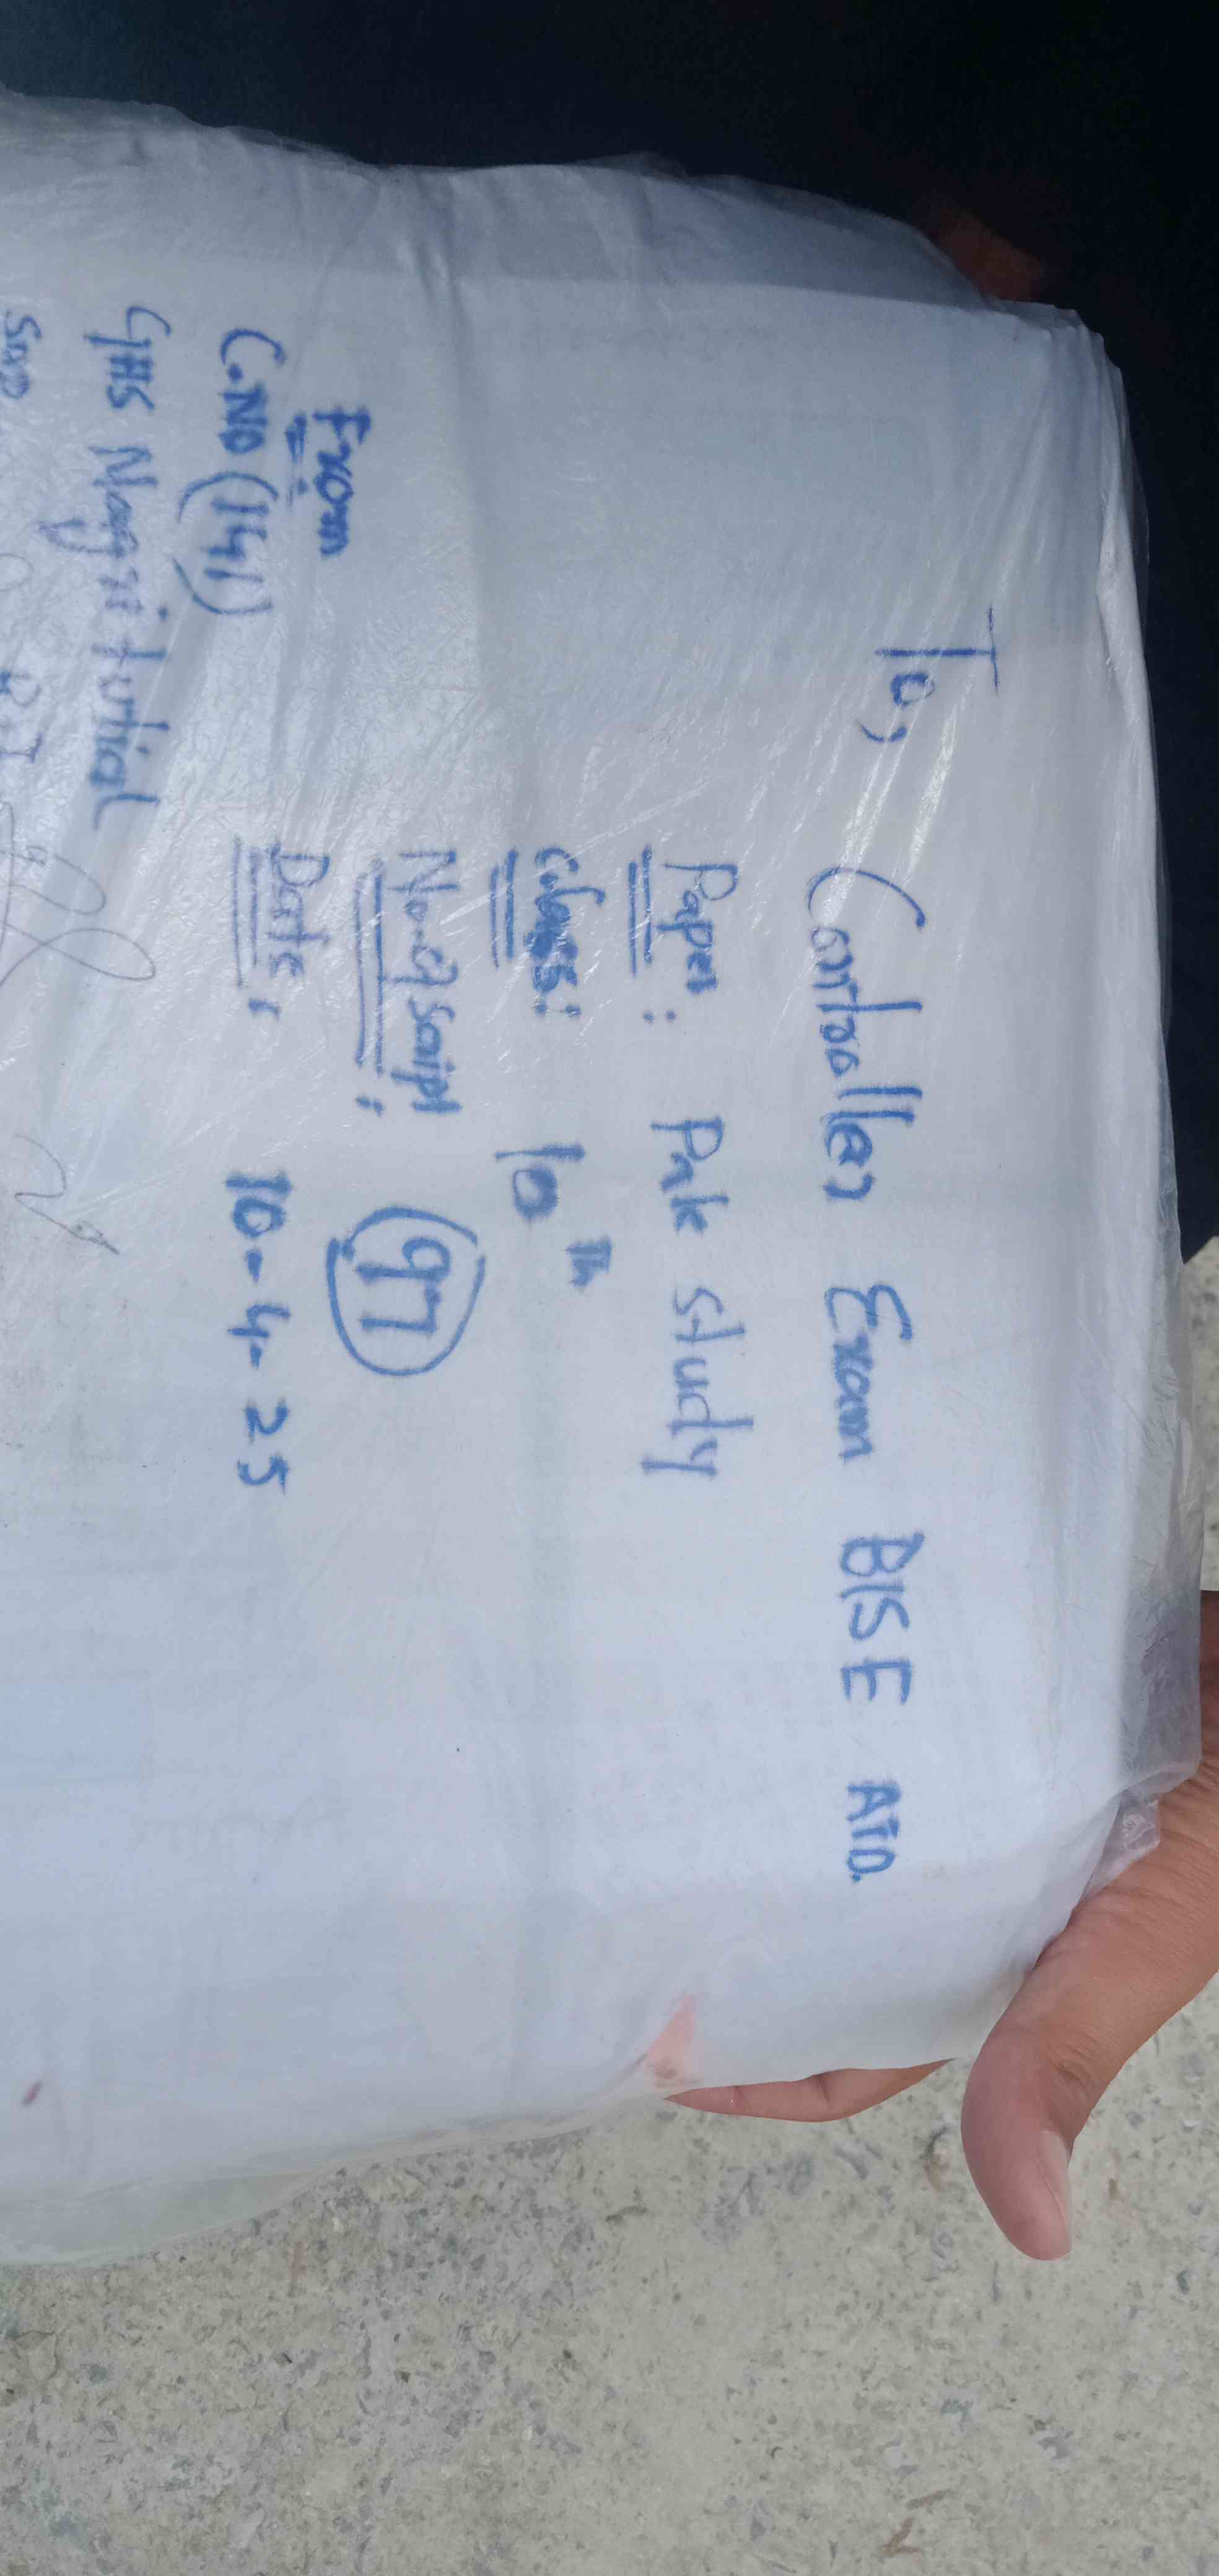 To,
Controller Exam BISE ATD.
Paper: Pak study
Class: 10th
No. of Script: 97
Date: 10-4-25
From
C.No (141)
GHS Nagri tutial